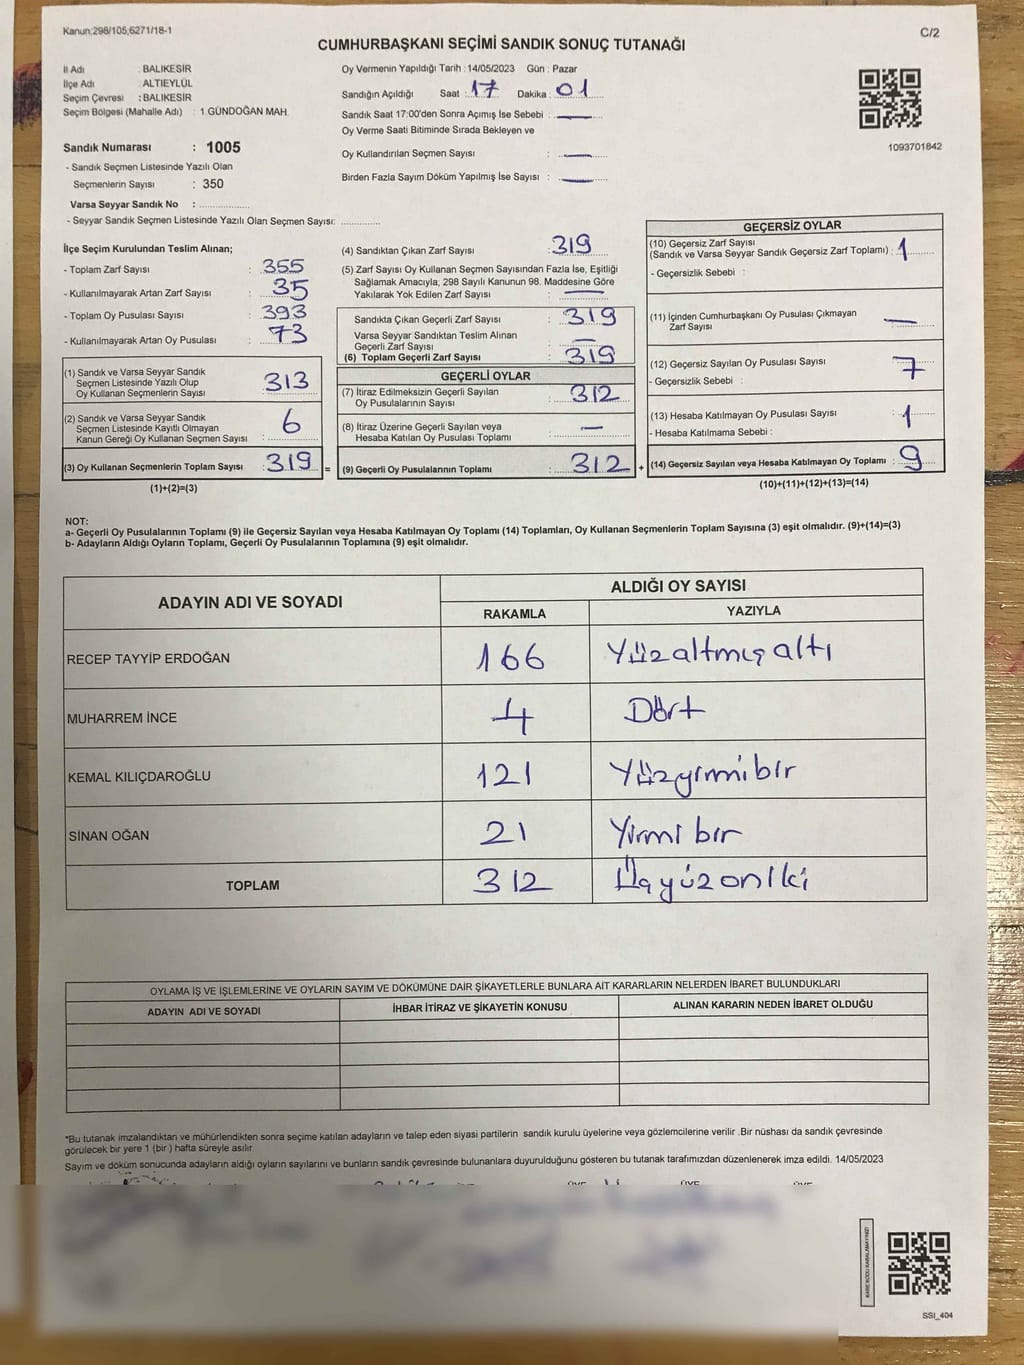 Kanun:298/105,6271/18-1
C/2
CUMHURBAŞKANI SEÇİMİ SANDIK SONUÇ TUTANAĞI
İl Adı : BALIKESİR
İlçe Adı : ALTIEYLÜL
Seçim Çevresi : BALIKESİR
Seçim Bölgesi (Mahalle Adı) : 1.GÜNDOĞAN MAH.
Sandık Numarası : 1005
- Sandık Seçmen Listesinde Yazılı Olan
Seçmenlerin Sayısı : 350
Varsa Seyyar Sandık No :
- Seyyar Sandık Seçmen Listesinde Yazılı Olan Seçmen Sayısı:
Oy Vermenin Yapıldığı Tarih : 14/05/2023 Gün : Pazar
Sandığın Açıldığı Saat : 17 Dakika : 01
Sandık Saat 17:00'den Sonra Açımış İse Sebebi : —
Oy Verme Saati Bitiminde Sırada Bekleyen ve
Oy Kullandırılan Seçmen Sayısı : —
Birden Fazla Sayım Döküm Yapılmış İse Sayısı : —
1093701842
İlçe Seçim Kurulundan Teslim Alınan;
- Toplam Zarf Sayısı : 355
- Kullanılmayarak Artan Zarf Sayısı : 35
- Toplam Oy Pusulası Sayısı : 393
- Kullanılmayarak Artan Oy Pusulası : 73
(1) Sandık ve Varsa Seyyar Sandık
Seçmen Listesinde Yazılı Olup
Oy Kullanan Seçmenlerin Sayısı : 313
(2) Sandık ve Varsa Seyyar Sandık
Seçmen Listesinde Kayıtlı Olmayan
Kanun Gereği Oy Kullanan Seçmen Sayısı : 6
(3) Oy Kullanan Seçmenlerin Toplam Sayısı : 319 =
(1)+(2)=(3)
(4) Sandıktan Çıkan Zarf Sayısı : 319
(5) Zarf Sayısı Oy Kullanan Seçmen Sayısından Fazla İse, Eşitliği
Sağlamak Amacıyla, 298 Sayılı Kanunun 98. Maddesine Göre
Yakılarak Yok Edilen Zarf Sayısı : —
Sandıkta Çıkan Geçerli Zarf Sayısı : 319
Varsa Seyyar Sandıktan Teslim Alınan
Geçerli Zarf Sayısı : —
(6) Toplam Geçerli Zarf Sayısı : 319
GEÇERLİ OYLAR
(7) İtiraz Edilmeksizin Geçerli Sayılan
Oy Pusulalarının Sayısı : 312
(8) İtiraz Üzerine Geçerli Sayılan veya
Hesaba Katılan Oy Pusulası Toplamı : —
(9) Geçerli Oy Pusulalarının Toplamı : 312 +
GEÇERSİZ OYLAR
(10) Geçersiz Zarf Sayısı
(Sandık ve Varsa Seyyar Sandık Geçersiz Zarf Toplamı) : 1
- Geçersizlik Sebebi :
(11) İçinden Cumhurbaşkanı Oy Pusulası Çıkmayan
Zarf Sayısı : —
(12) Geçersiz Sayılan Oy Pusulası Sayısı : 7
- Geçersizlik Sebebi :
(13) Hesaba Katılmayan Oy Pusulası Sayısı : 1
- Hesaba Katılmama Sebebi :
(14) Geçersiz Sayılan veya Hesaba Katılmayan Oy Toplamı : 9
(10)+(11)+(12)+(13)=(14)
NOT:
a- Geçerli Oy Pusulalarının Toplamı (9) ile Geçersiz Sayılan veya Hesaba Katılmayan Oy Toplamı (14) Toplamları, Oy Kullanan Seçmenlerin Toplam Sayısına (3) eşit olmalıdır. (9)+(14)=(3)
b- Adayların Aldığı Oyların Toplamı, Geçerli Oy Pusulalarının Toplamına (9) eşit olmalıdır.
ADAYIN ADI VE SOYADI ALDIĞI OY SAYISI
RAKAMLA YAZIYLA
RECEP TAYYİP ERDOĞAN 166 Yüzaltmışaltı
MUHARREM İNCE 4 Dört
KEMAL KILIÇDAROĞLU 121 Yüzyirmibir
SİNAN OĞAN 21 Yirmi bir
TOPLAM 312 Üçyüzoniki
OYLAMA İŞ VE İŞLEMLERİNE VE OYLARIN SAYIM VE DÖKÜMÜNE DAİR ŞİKAYETLERLE BUNLARA AİT KARARLARIN NELERDEN İBARET BULUNDUKLARI
ADAYIN ADI VE SOYADI İHBAR İTİRAZ VE ŞİKAYETİN KONUSU ALINAN KARARIN NEDEN İBARET OLDUĞU
*Bu tutanak imzalandıktan ve mühürlendikten sonra seçime katılan adayların ve talep eden siyasi partilerin sandık kurulu üyelerine veya gözlemcilerine verilir .Bir nüshası da sandık çevresinde
görülecek bir yere 1 (bir ) hafta süreyle asılır.
Sayım ve döküm sonucunda adayların aldığı oyların sayılarını ve bunların sandık çevresinde bulunanlara duyurulduğunu gösteren bu tutanak tarafımızdan düzenlenerek imza edildi. 14/05/2023
KARE KODU KARALAMAYINIZ!
SSI_404